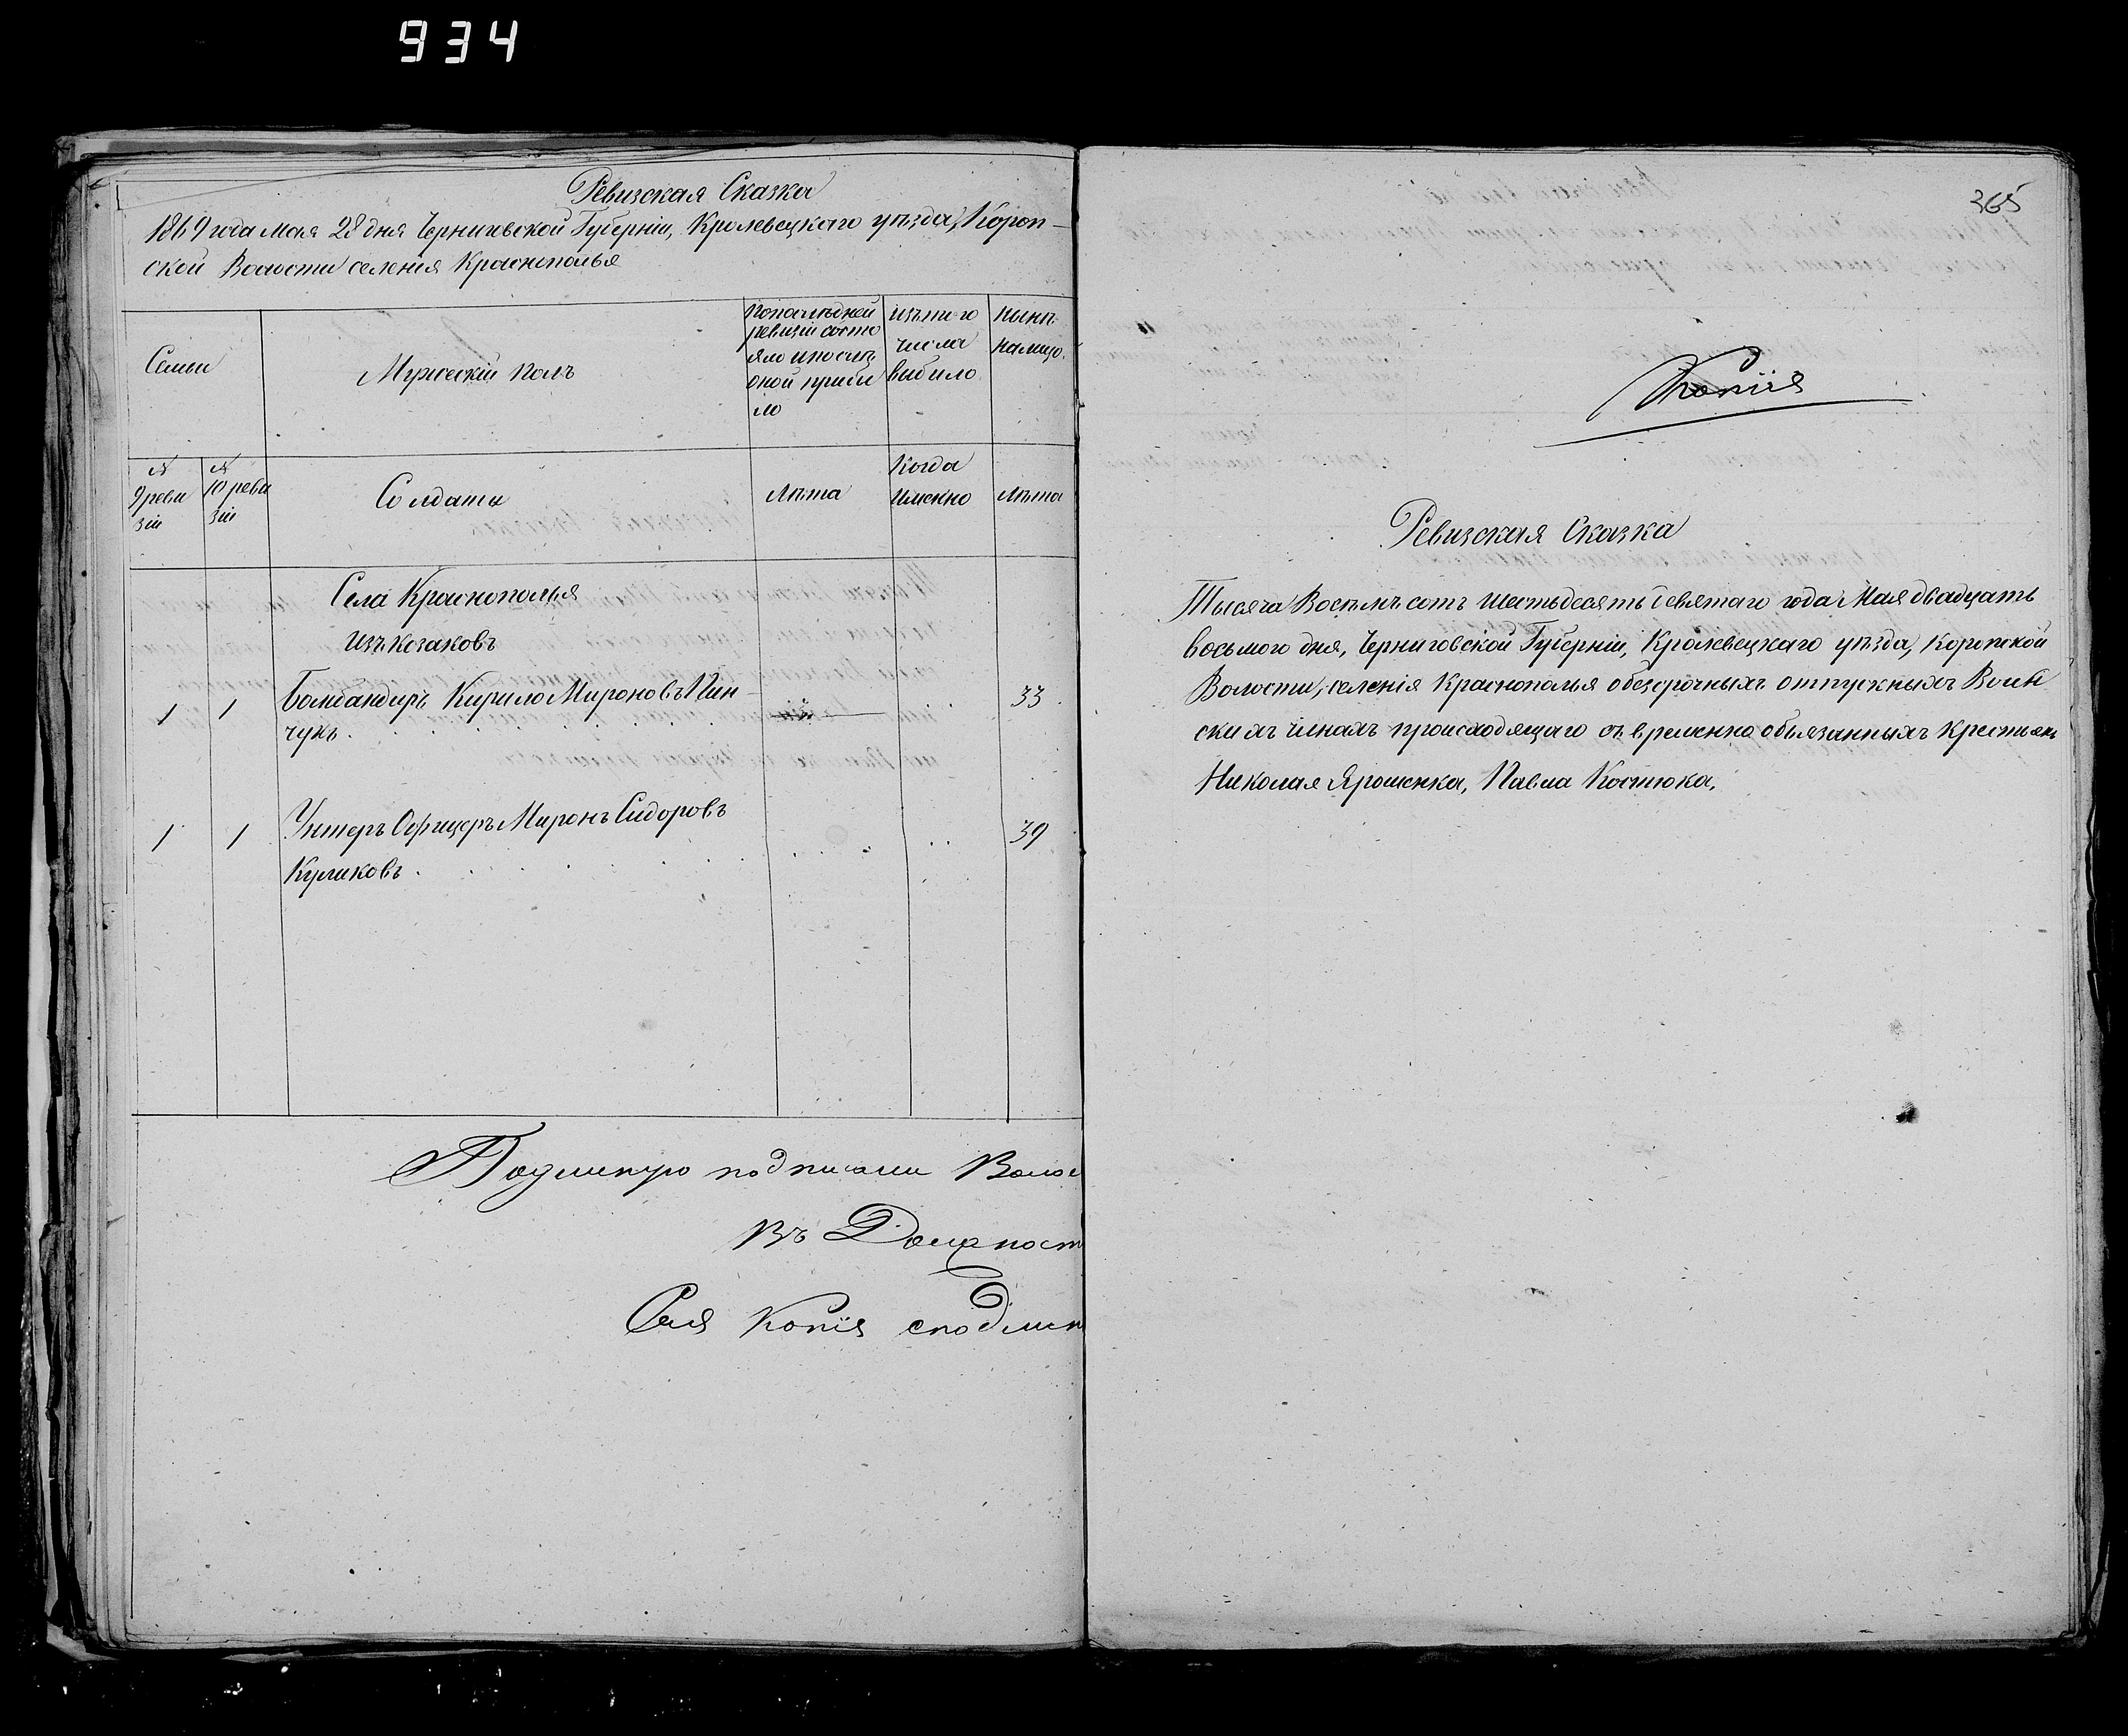 934
Ревизская Сказка
1869 года мая 28 дня Черниговской Губерніи, Кролевецкаго уѣзда, Короп-
ской Волости селенія Краснополья
Семьи
Мужескій полъ
Попослѣдней
ревизіи состо
яло ипослѣ
оной прибы
ло
Изътого
числа
выбыло
Нынѣ
налицо.
№
9 реви
зіи
№
10 реви
зіи
Солдаты
Лѣта
Когда
Именно
Лѣта
Села Краснополья
изъ козаковъ
1 1 Бомбандиръ Кирило Мироновъ Пин-
чукъ . 33
1 1 Унтеръ Офицеръ Миронъ Сидоровъ
Куликовъ . 39
Подлинную подписали Волос
Въ Должност
Сія Копія сподлин
365
Копія
Ревизская Сказка
Тысяча Восемьсотъ шестьдесятъ девятаго года Мая двадцать
восьмого дня, Черниговской Губерніи, Кролевецкаго уѣзда, Коропской
Волости, селенія Краснополья обезсрочныхъ отпускныхъ Воин
скихъ чинахъ происходящаго съ временно обязанныхъ крестьянъ
Николая Ярошенка, Павла Костюка,